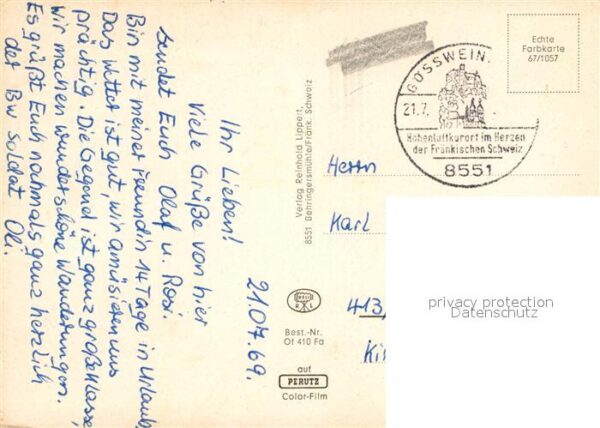 21.07.69.
Ihr Lieben!
Viele Grüße von hier
sendet Euch Olaf u. Rosi.
Bin mit meiner Freundin 14 Tage in Urlaub,
Das Wetter ist gut, wir amüsieren uns
prächtig. Die Gegend ist ganz große Klasse,
wir machen wunderschöne Wanderungen.
Es grüßt Euch nochmals ganz herzlich
der Bw Soldat Oli.
Verlag Reinhold Lippert,
8551 Behringersmühle/Fränk. Schweiz
Best.-Nr.
Of 410 Fa
auf
PERUTZ
Color-Film
GÖSSWEIN
21.7.
Höhenluftkurort im Herzen
der Fränkischen Schweiz
8551
Echte
Farbkarte
67/1057
Herrn
Karl
413
privacy protection
Datenschutz